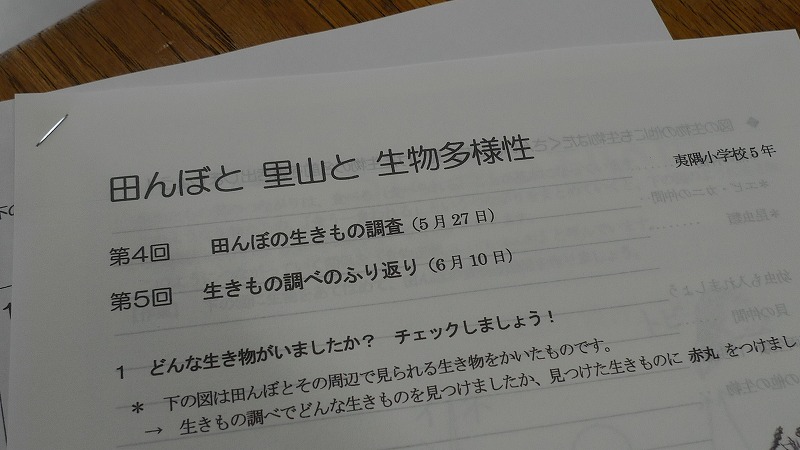 田んぼと 里山と 生物多様性
夷隅小学校5年
第4回 田んぼの生きもの調査（5月27日）
第5回 生きもの調べのふり返り（6月10日）
1 どんな生き物がいましたか？ チェックしましょう！
＊ 下の図は田んぼとその周辺で見られる生き物をかいたものです。
→ 生きもの調べでどんな生きものを見つけましたか、見つけた生きものに 赤丸 をつけまし
下の
1